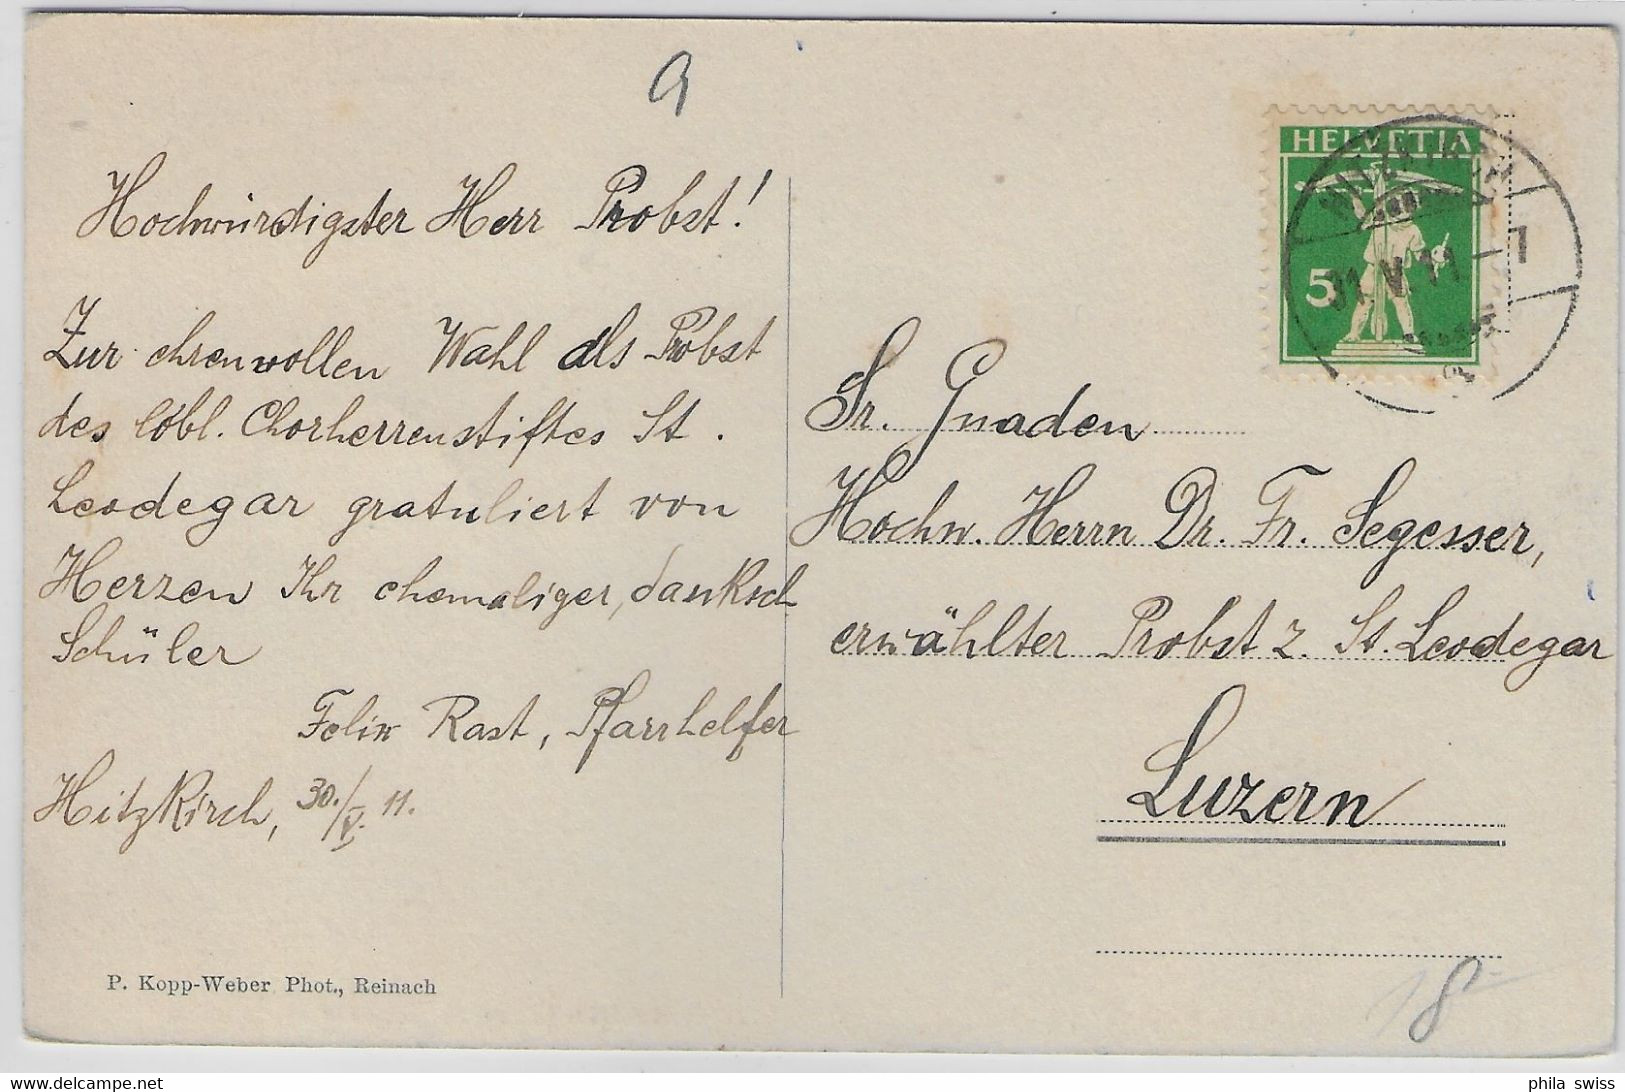 9
Hochwürdigster Herr Probst!
Zur ehrenvollen Wahl als Probst
des löbl. Chorherrenstiftes St.
Leodegar gratuliert von
Herzen Ihr ehemaliger, danksch
Schüler
Felix Rast, Pfarrhelfer
Hitzkirch, 30./V. 11.
P. Kopp-Weber Phot., Reinach
HELVETIA
5
HITZKIRCH
31.V.11-7
Sr. Gnaden
Hochw. Herrn Dr. Fr. Segesser,
erwählter Probst z. St. Leodegar
Luzern
18-
delcampe.net
phila_swiss